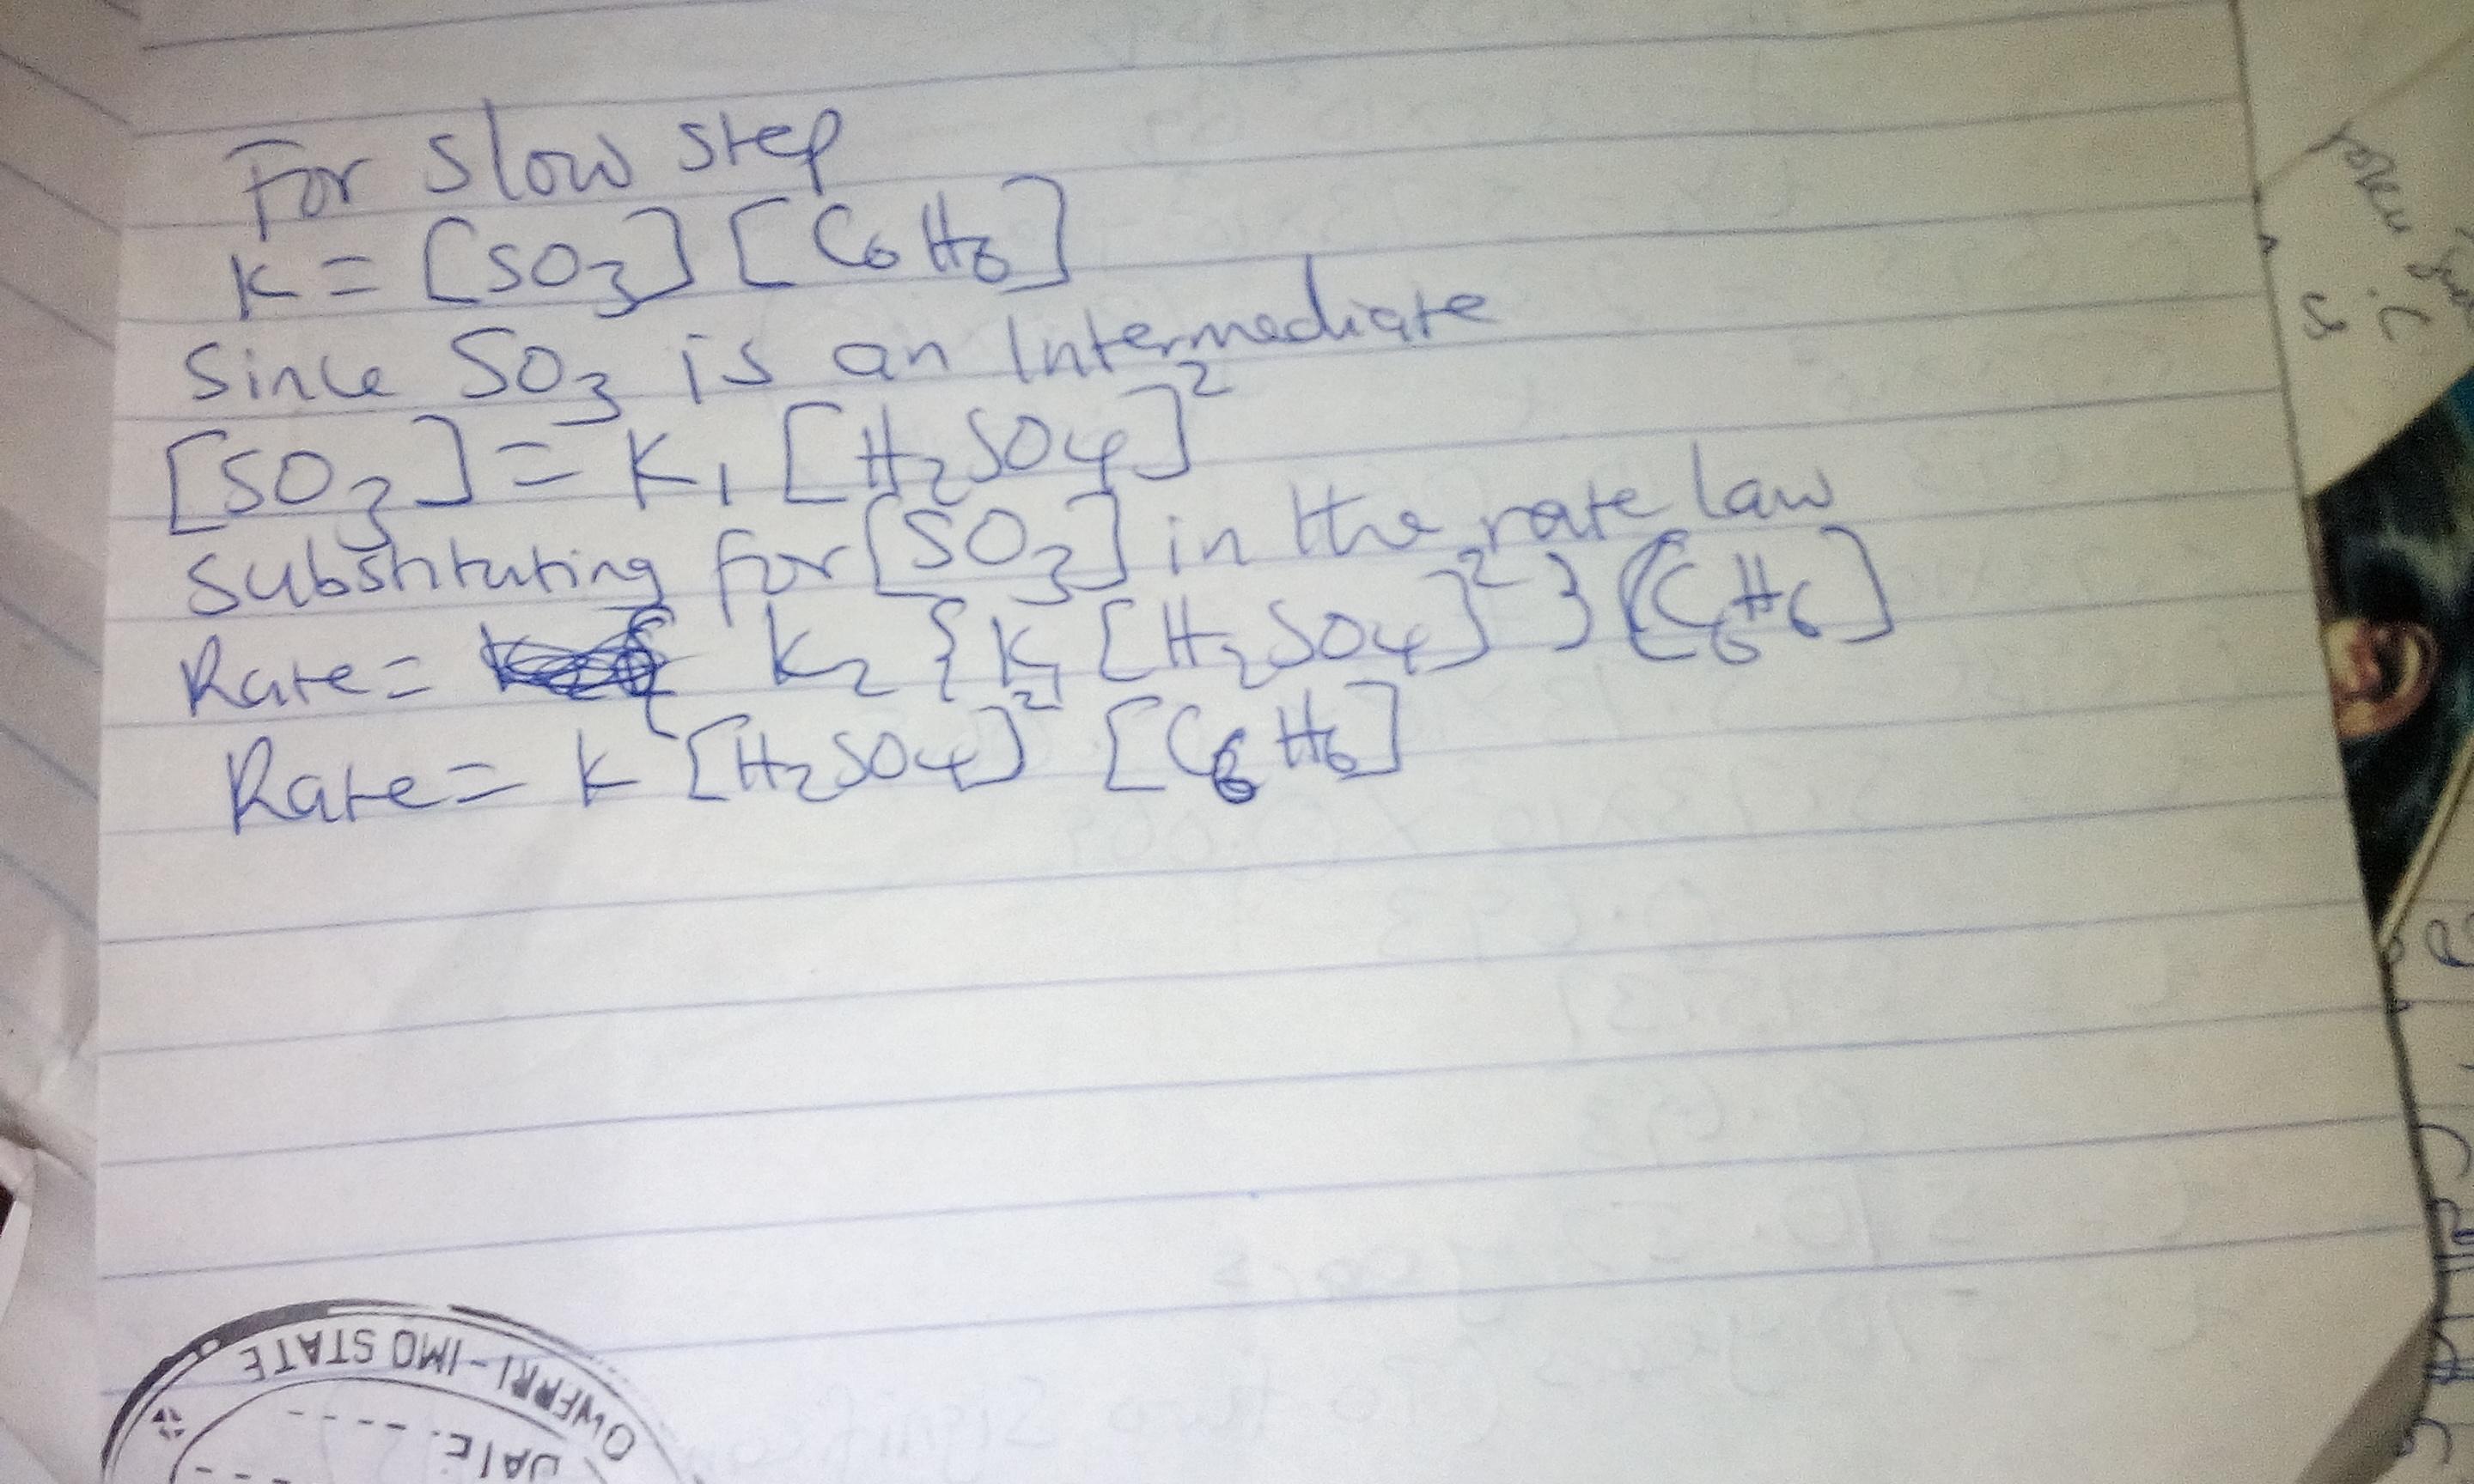 For slow step
K = [SO3] [C6H6]
Since SO3 is an Intermediate
[SO3] = K1 [H2SO4]²
Substituting for [SO3] in the rate law
Rate = K2 {K1 [H2SO4]²} [C6H6]
Rate = K [H2SO4]² [C6H6]
OWERRI - IMO STATE
DATE: